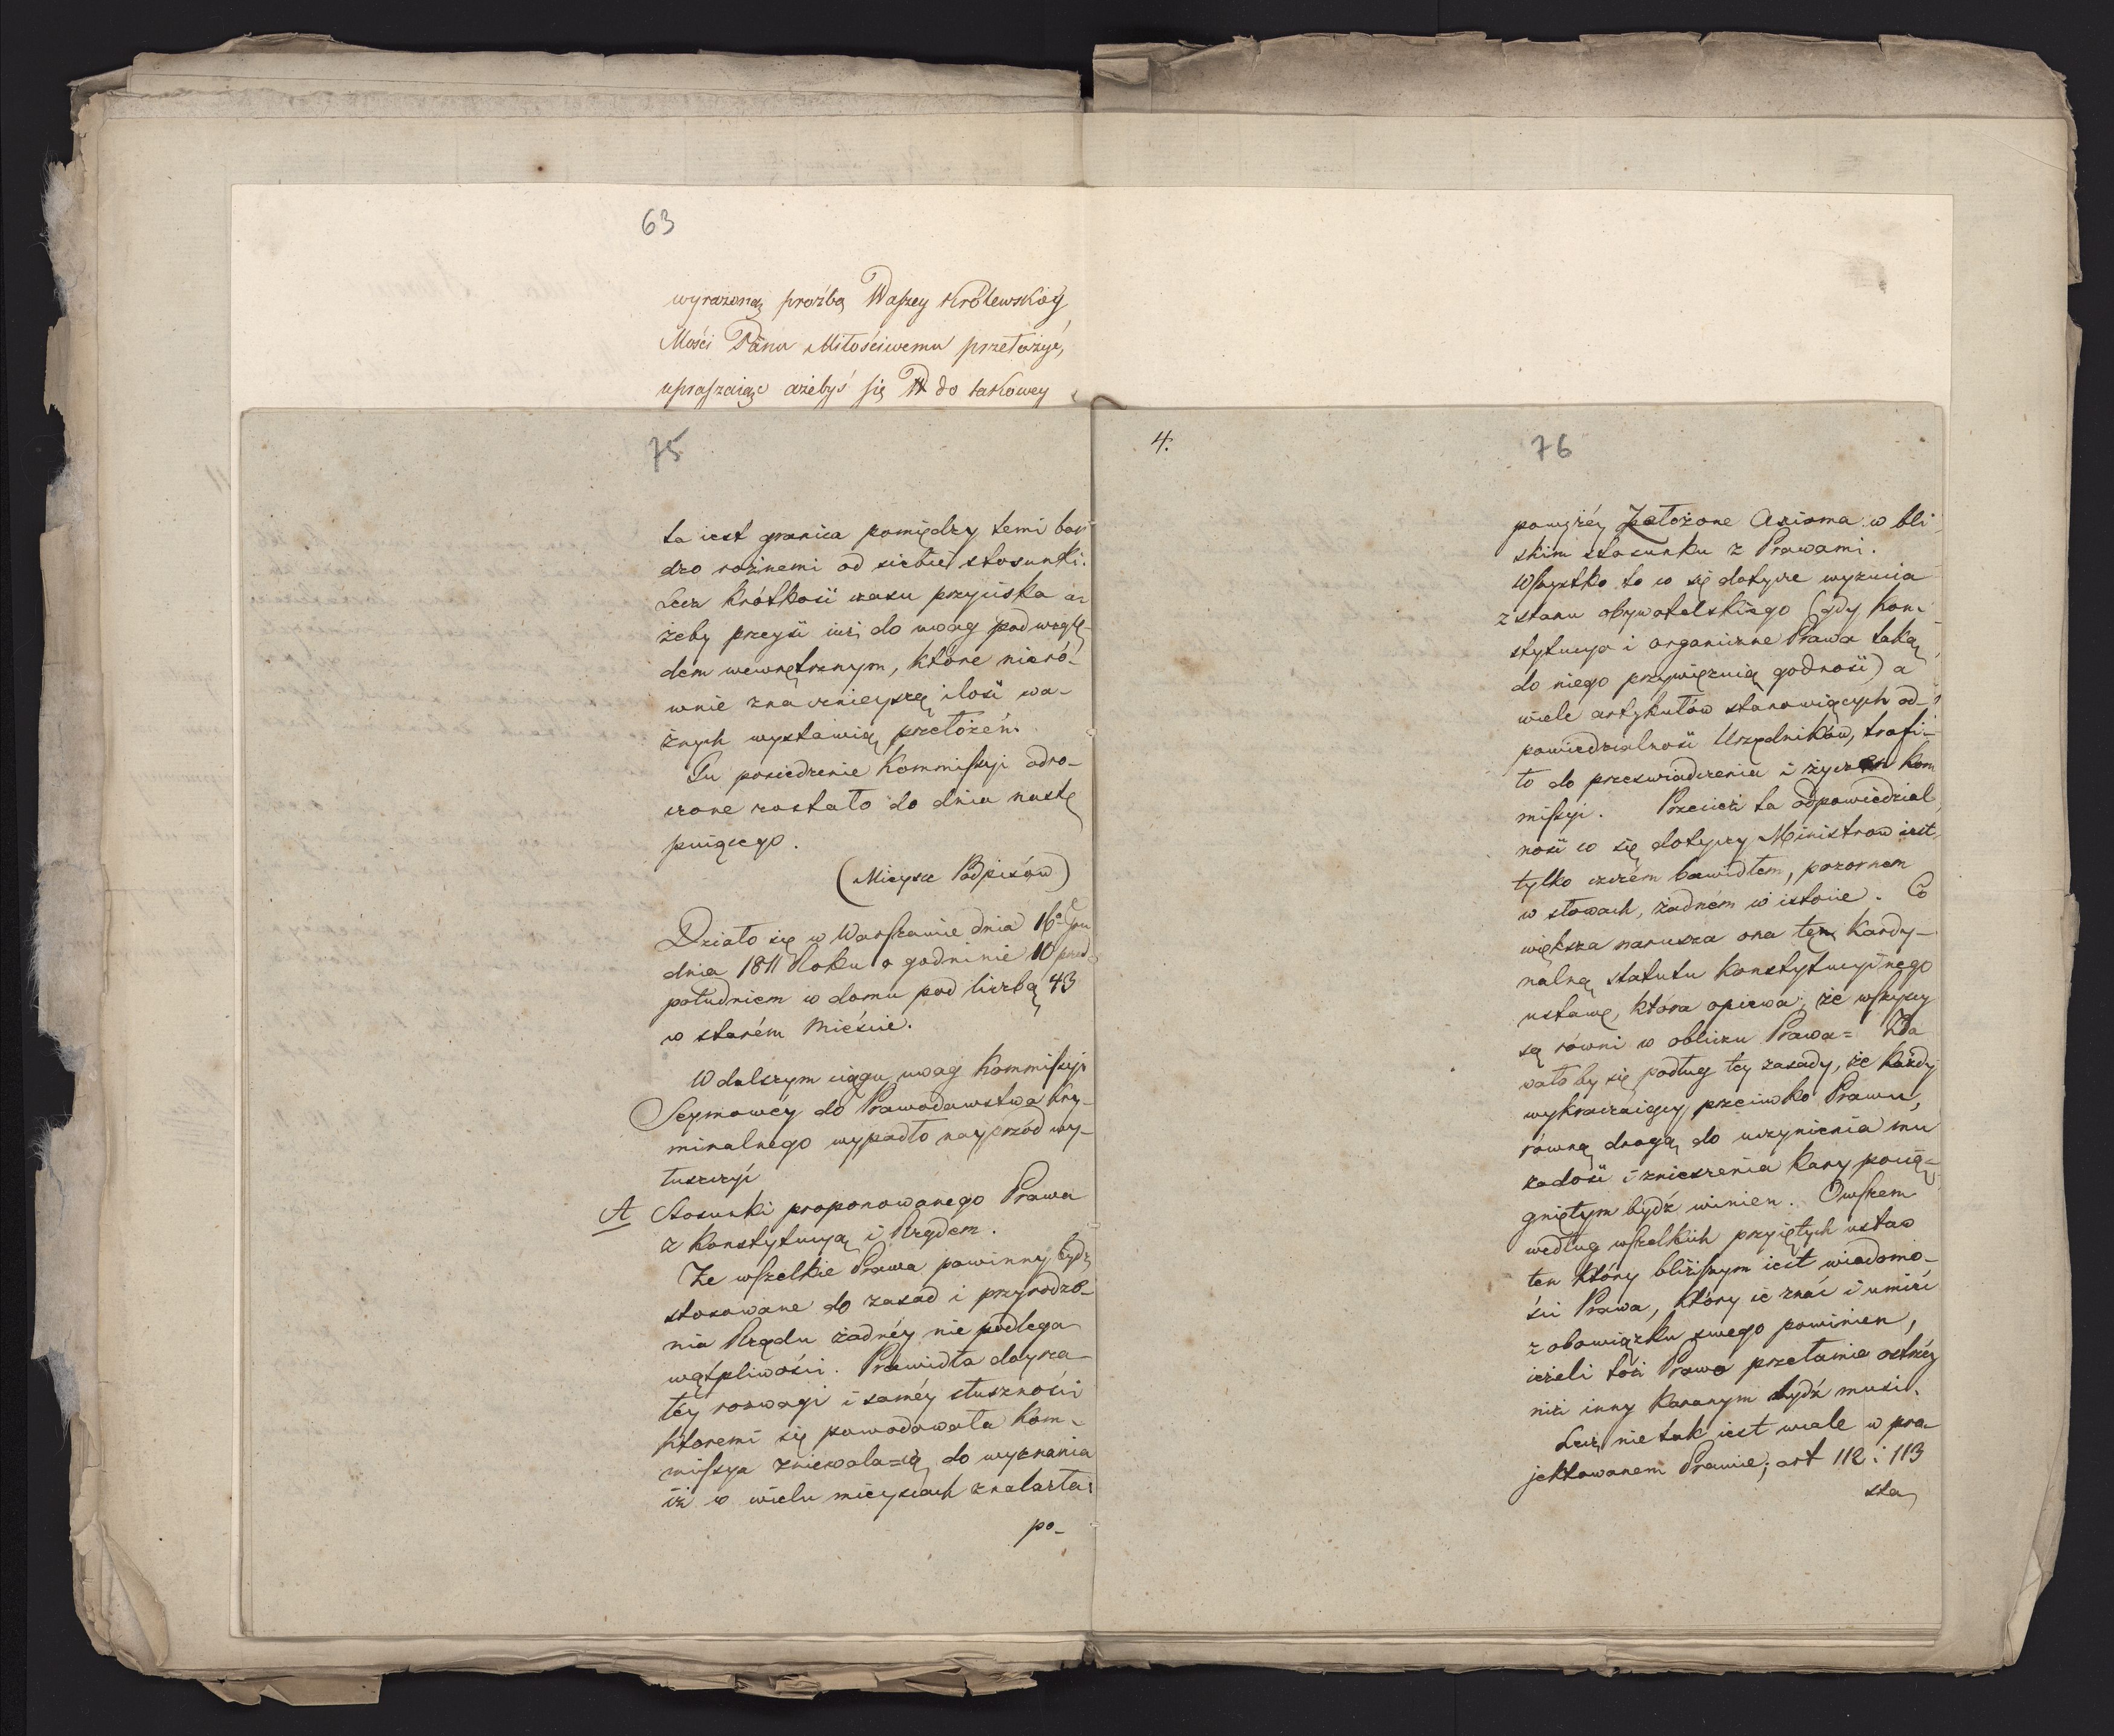 63
wyrażoną proźbą Waszey Królewskiéy
Mości Panu Miłościwemu przełożyć,
upraszaiąc ażebyś się W do takowey
75
ta iest granica pomiędzy temi bar
dzo rożnemi od siebie stosunki.
Lecz krótkość czasu przyciska a=
żeby przeyść iuż do uwag pod wzglę-
dem wewnętrznym, które nieró-
wnie znacznieyszą ilość wa-
żnych wystawią przełożeń.
Tu posiedzenie Kommissyi odro-
czone zostało do dnia nastę
puiącego.
(Mieysce Podpisów)
Działo się w Warszawie dnia 16º Gru
dnia 1811 Roku o godninie 10 przed
południem w domu pod liczbą 43
w starém Mieście.
W dalszym ciągu uwag Kommissyi
Seymowéy do Prawodawstwa kry-
minalnego wypadło nayprzód wy-
łuszczyć
A Stosunki proponowanego Prawa
z Konstytucyą i Rządem.
Że wszelkie Prawa powinny bydź
stosowane do zasad i przyrodze-
nia Rządu żadnéy nie podlega
wątpliwości. Prawidła doyrza-
łéy rozwagi i saméy słuszności
któremi się powodowała Kom-
missya zniewala=ią do wyznania
iż w wielu mieyscach znalazła
po-
4.
76
powyżéy Założone Axioma w bli-
skim stosunku z Prawami.
Wszystko to co się dotycze wyzucia
z stanu obywatelskiego (gdy kon-
stytucya i organiczne Prawa taką
do niego przywięzuią godność) a
wiele artykułów stanowiących od-
powiedzialność Urzędników, trafi-
ło do przeświadczenia i życzeń Kom
missyi. Przecież ta odpowiedzial
ność co się dotyczy Ministrow iest
tylko czczém bawidłem, pozornem
w słowach, żadném w istocie. Co
większa narusza ona tę Kardy-
nalną statutu konstytucyinego
ustawę, która opiewa, że wszyscy
są równi w obliczu Prawa= Zda
wało by się podług tey zasady, że każdy
wykraczaiący przeciwko Prawu,
równą drogą do uczynienia mu
zadość i zniesienia kary pocią=
gniętym bydź winien. Owszem
według wszelkich przyiętych ustaw
ten który bliższym iest wiadomo-
ści Prawa, który ie znać i umieć
z obowiązku swego powinien,
ieżeli toż Prawo przełamie ostrzéy
niż inny karanym bydź musi.
Lecz nie tak iest wcale w pro-
jektowanem Prawie; art 112 i 113
sta